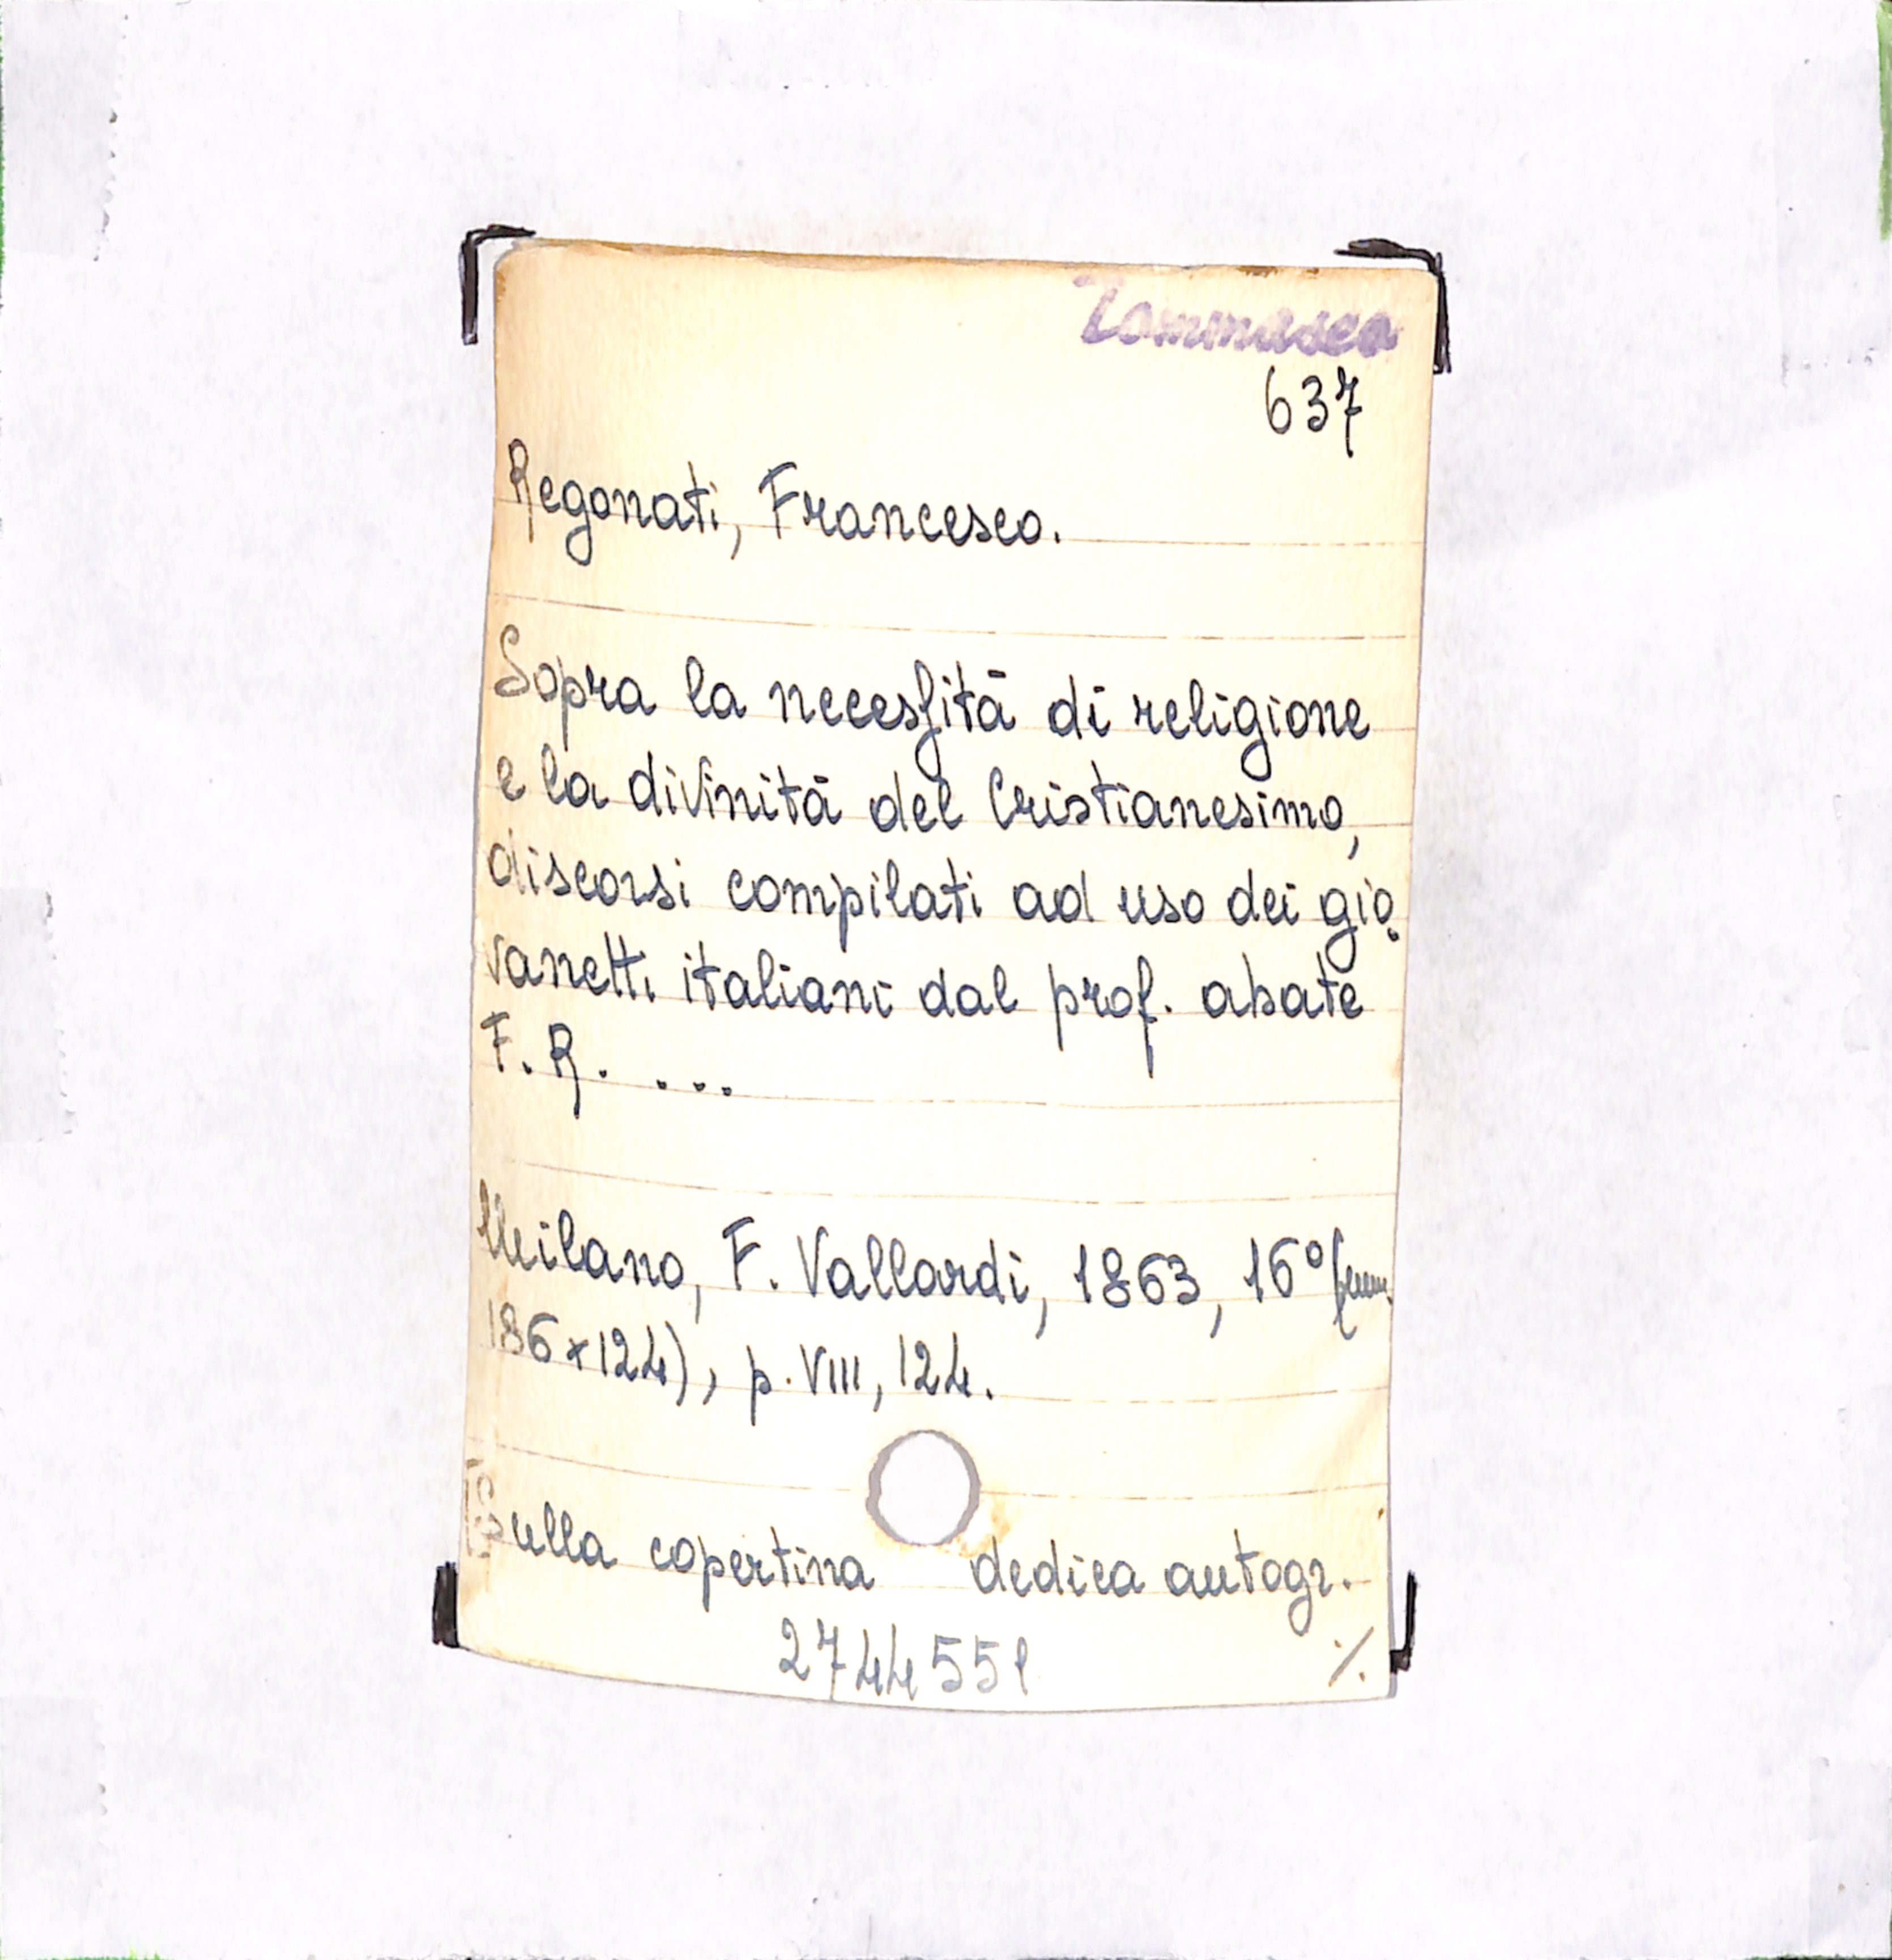 Tommaseo
637
Regonati, Francesco.
Sopra la necessità di religione
e la divinità del Cristianesimo,
discorsi compilati ad uso dei gio
vanetti italiani dal prof. abate
F. R. ....
Milano, F. Vallardi, 1863, 16° (mm.
186x124), p. VIII, 124.
Sulla copertina dedica autogr.
2744551
./.